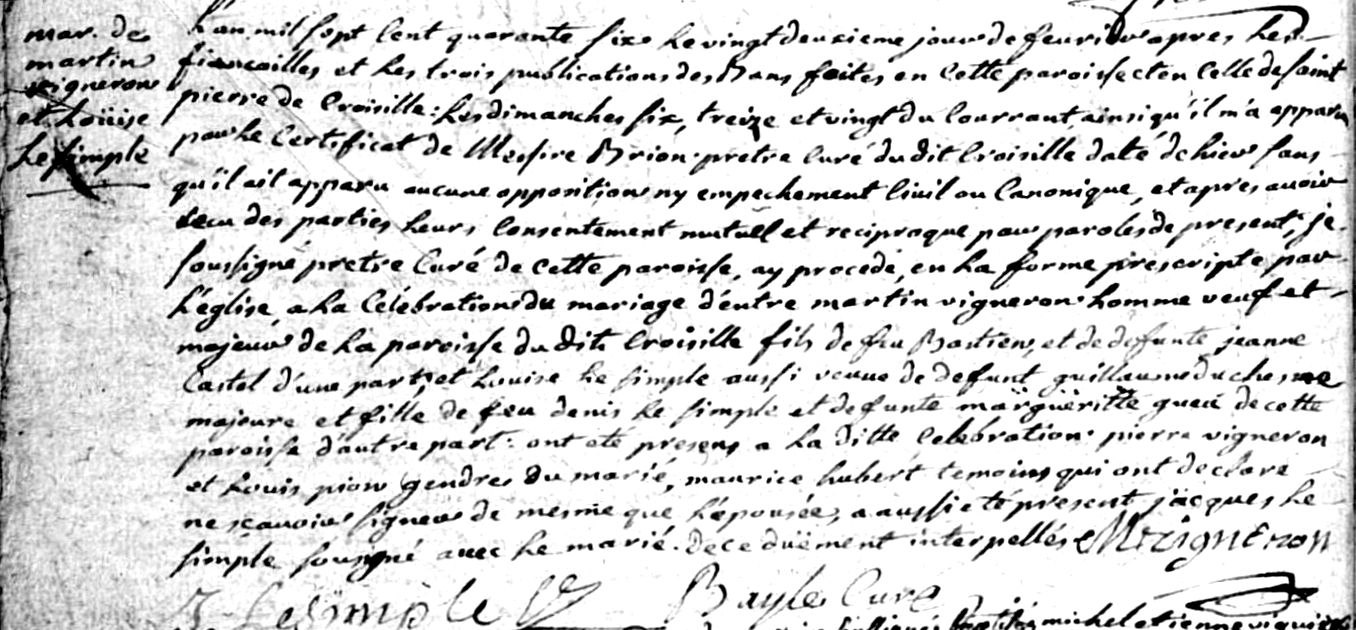 mar. de
martin
vigneron
et Loüise
Le simple
L'an mil sept Cent quarante six Le vingt deuxieme jour de feurier apres Les
fiancailles et Les trois publications des Bans faites en Cette paroisse et en Celle de saint
pierre de Croisille : Les dimanches six, treize et vingt du Courrant, ainsi qu'il m'a apparu
par Le Certificat de Messire Brion pretre Curé du dit Croisille daté de hier sans
qu'il ait apparu aucune opposition ny empechement Civil ou Canonique, et apres auoir
recu des parties Leurs Consentement mutuel et reciproque par paroles de present, je
soussigné pretre Curé de Cette paroisse, ay procedé, en La forme prescripte par
L'église, a La Celébration du mariage d'entre martin vigneron homme veuf et
majeur de La paroisse du dit Croisille fils de feu Bastien, et de defunte jeanne
Castel d'une part, et Louise Le simple aussi veuue de defunt guillaume duchesne
majeure et fille de feu denis Le simple et defunte margueritte queu de cette
paroisse d'autre part : ont eté presens a La ditte Celebration pierre vigneron
et Louis pion gendre du marié, maurice hubert temoins qui ont declare
ne sçauoir signer de mesme que L'épousée, a aussi eté present jacques Le
simple sousigné auec Le marié. de ce duëment interpellés M vigneron
J Lesimple Bayle Curé
michel etienne